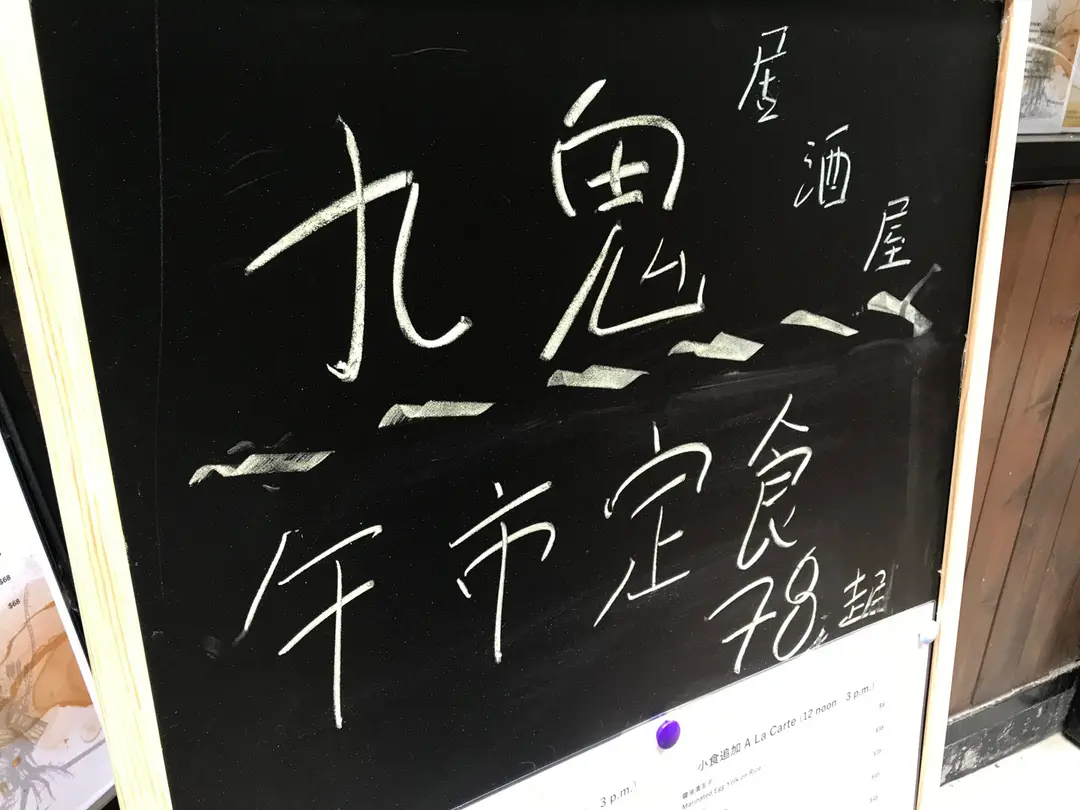 九鬼
居酒屋
午市定食
78起
3 p.m.)
小食追加 A La Carte (12 noon 3 p.m.)
Marinated Egg Yolk on Rice
$68
$68